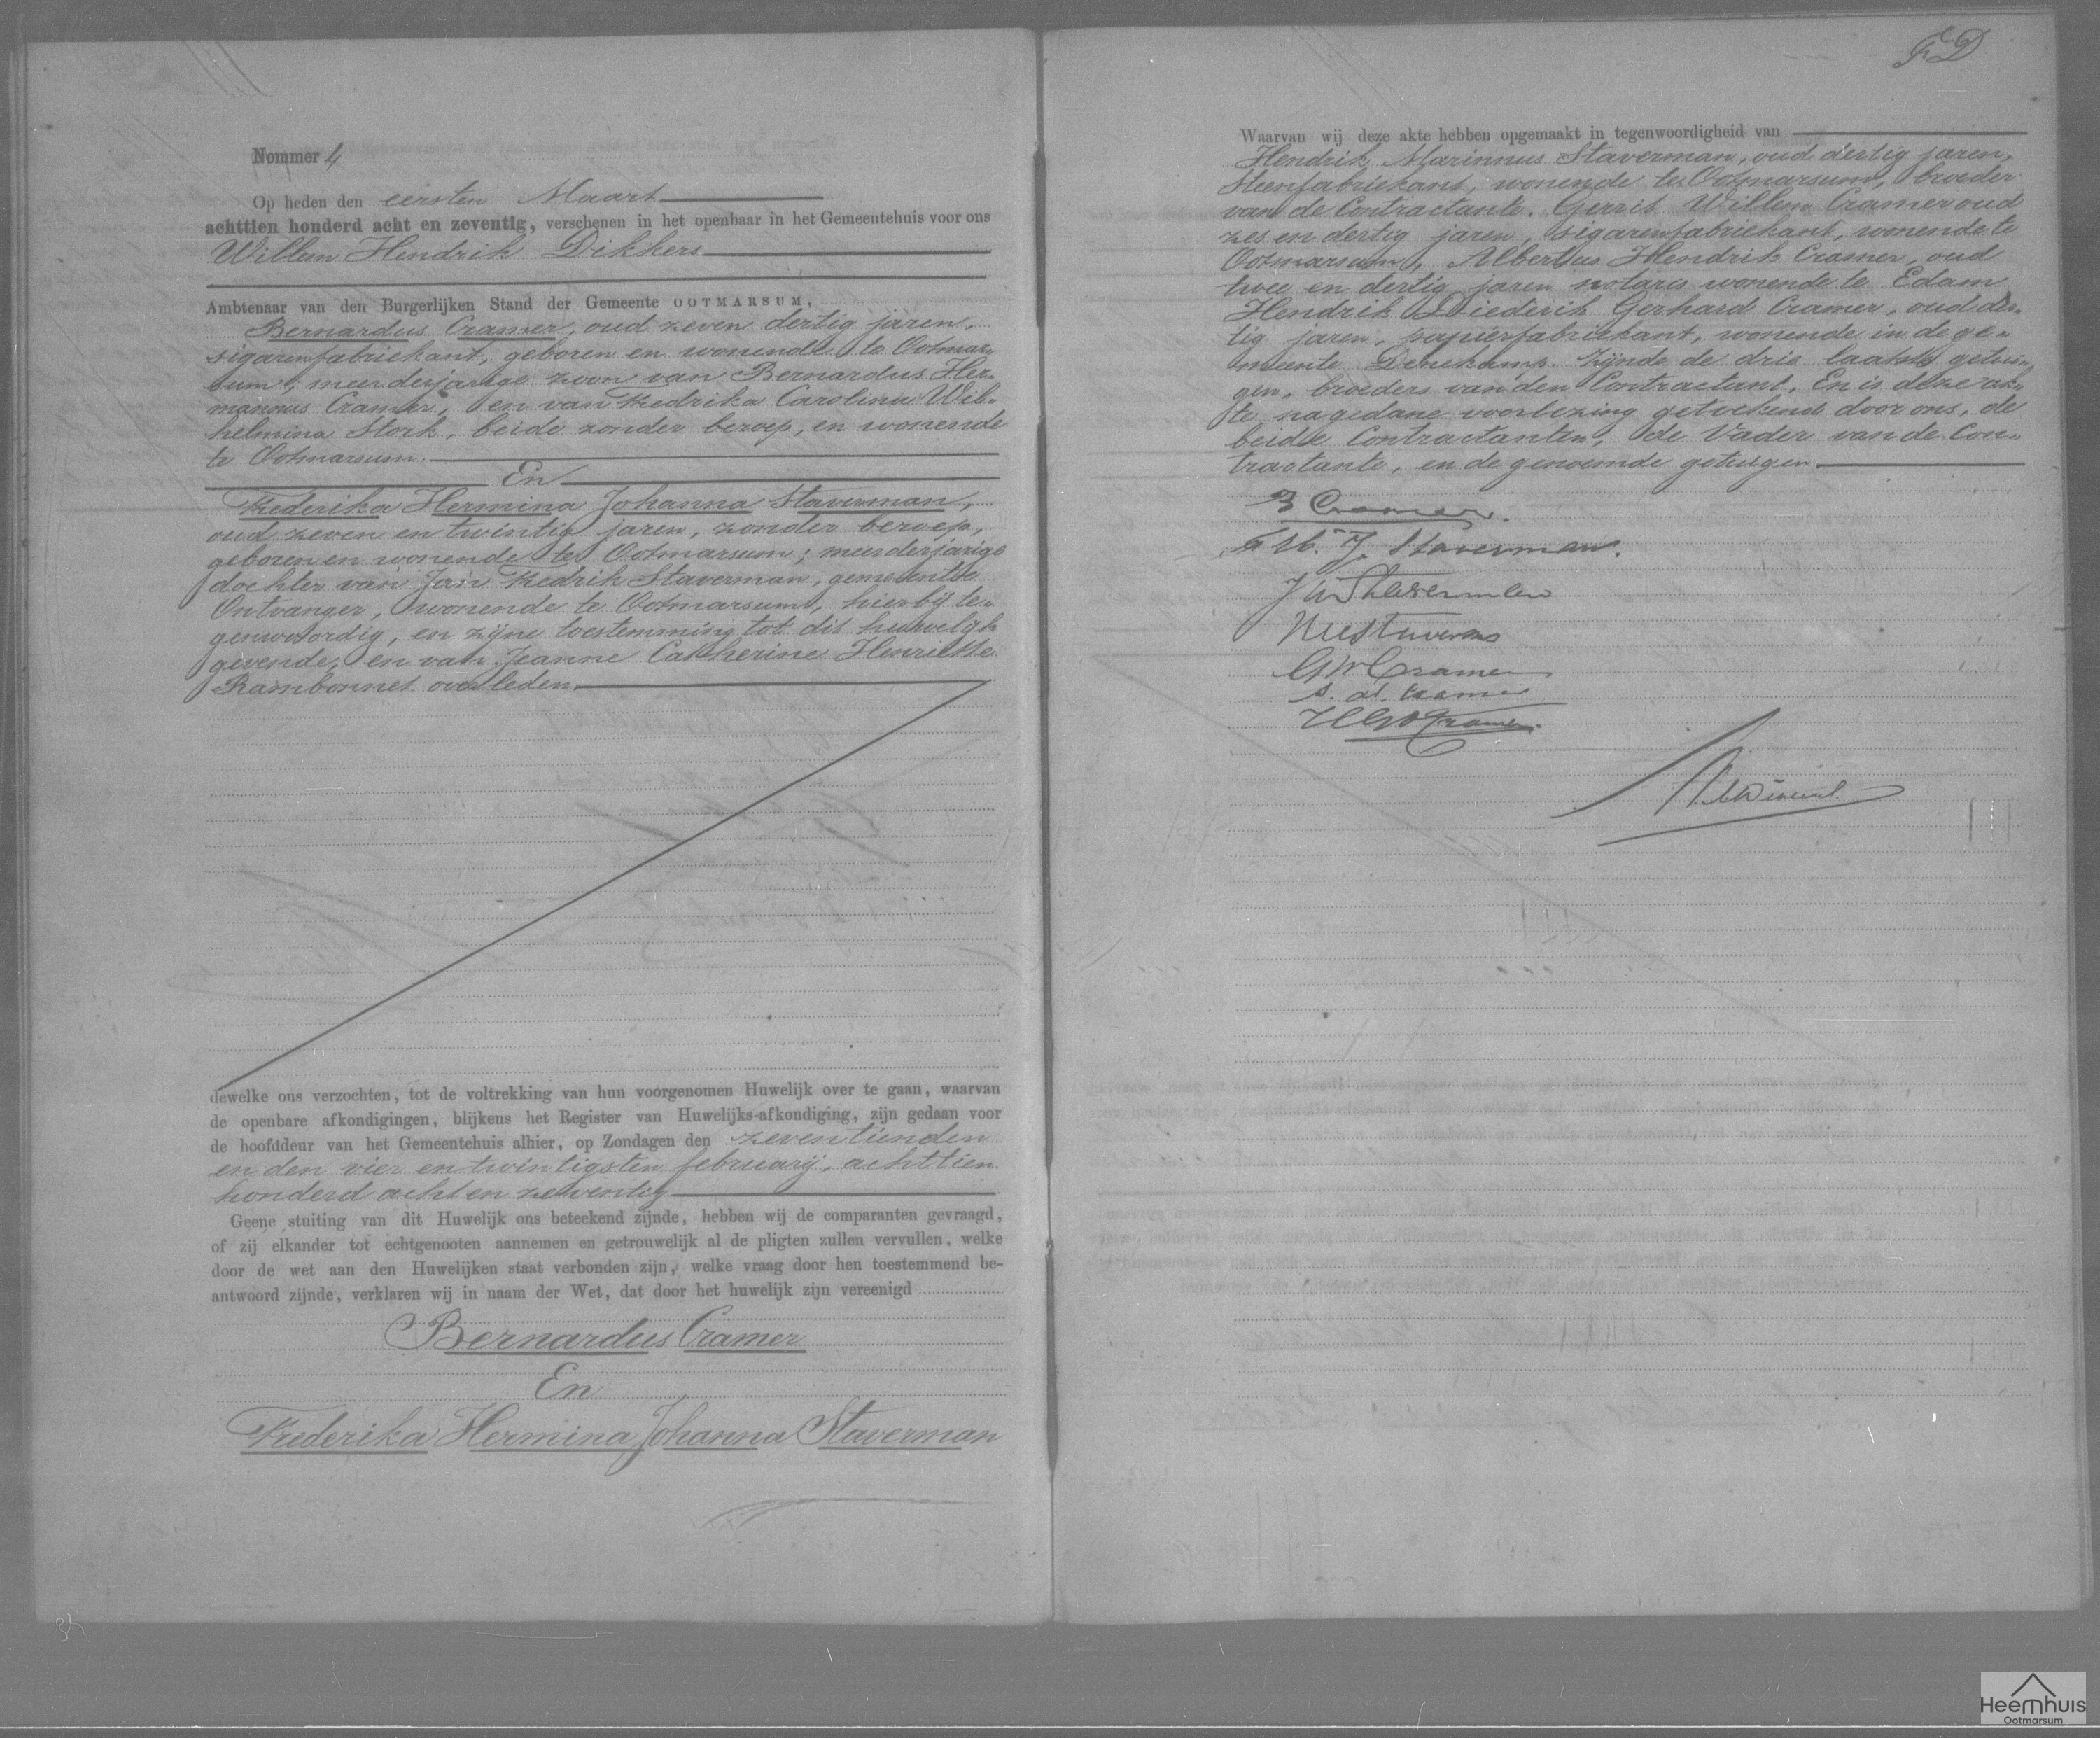 Nommer 4
Op heden den eersten Maart
achttien honderd acht en zeventig, verschenen in het openbaar in het Gemeentehuis voor ons
Willem Hendrik Dikkers
Ambtenaar van den Burgerlijken Stand der Gemeente OOTMARSUM,
Bernardus Cramer, oud zeven dertig jaren,
sigarenfabriekant, geboren en wonende te Ootmar-
sum, meerderjarige zoon van Bernardus Her-
mannus Cramer, en van Fredrika Carolina Wil-
helmina Stork, beide zonder beroep, en wonende
te Ootmarsum.
En
Frederika Hermina Johanna Staverman,
oud zeven en twintig jaren, zonder beroep,
geboren en wonende te Ootmarsum; meerderjarige
dochter van Jan Fredrik Staverman, gemeente
Ontvanger, wonende te Ootmarsum, hierbij te-
genwoordig, en zijne toestemming tot dit huwelijk
gevende, en van Jeanne Catherine Henriette
Rambonnet overleden.
dewelke ons verzochten, tot de voltrekking van hun voorgenomen Huwelijk over te gaan, waarvan
de openbare afkondigingen, blijkens het Register van Huwelijks-afkondiging, zijn gedaan voor
de hoofddeur van het Gemeentehuis alhier, op Zondagen den zeventienden
en den vier en twintigsten februarij, achttien
honderd acht en zeventig
Geene stuiting van dit Huwelijk ons beteekend zijnde, hebben wij de comparanten gevraagd,
of zij elkander tot echtgenooten aannemen en getrouwelijk al de pligten zullen vervullen, welke
door de wet aan den Huwelijken staat verbonden zijn, welke vraag door hen toestemmend be-
antwoord zijnde, verklaren wij in naam der Wet, dat door het huwelijk zijn vereenigd
Bernardus Cramer
En
Frederika Hermina Johanna Staverman
FD
Waarvan wij deze akte hebben opgemaakt in tegenwoordigheid van
Hendrik Marinnus Staverman, oud dertig jaren,
steenfabriekant, wonende te Ootmarsum, broeder
van de Contractante. Gerrit Willem Cramer oud
zes en dertig jaren, sigarenfabriekant, wonende te
Ootmarsum, Albertus Hendrik Cramer, oud
twee en dertig jaren notaris wonende te Edam
Hendrik Diederik Gerhard Cramer, oud der-
tig jaren, papierfabriekant, wonende in de ge-
meente Denekamp. Zijnde de drie laatste getui-
gen, broeders van den Contractant, En is deze ak-
te na gedane voorlezing geteekend door ons, de
beide Contractanten, de Vader van de Con-
tractante, en de genoemde getuigen.
B Cramer.
F H. J. Staverman.
J F Staverman
HM Staverman
GW Cramer
A. H. Cramer
HDG Cramer.
Heemhuis
Ootmarsum